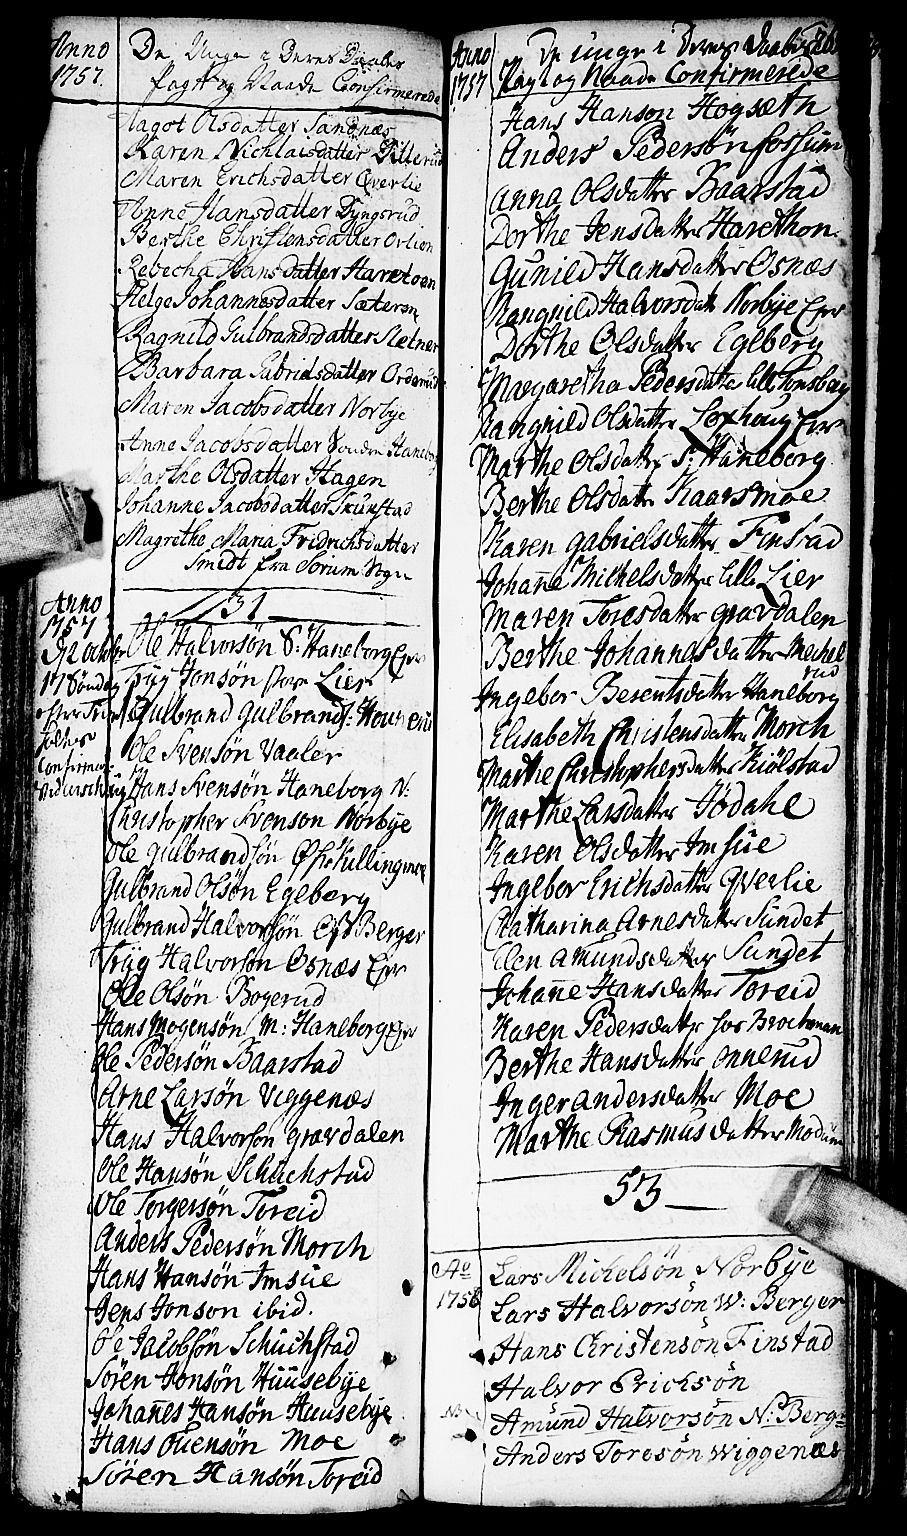 Anno 1757.
De Unge i Deres Daabes
Pagt og Naade Confirmerede
Aagot Olsdatter Sandnæs
Karen Nichlaisdatter Ditterud
Maren Erichsdatter Qverlie
Anne Hansdatter Dyngsrud
Berthe Christensdatter Orlien
Rebecha Hansdatter Haretoen
Helge Johannesdatter Sæteren
Ragnild Gulbrandsdatter Sletner
Barbara Gabrielsdatter Orderud
Maren Jacobsdatter Norbye
Anne Jacobsdatter Sondre Haneborg
Marthe Olsdatter Hagen
Johanne Jacobsdatter Skukstad
Magrethe Maria Fridrichsdatter
Smidt fra Sörum Sogn
31
Anno
1757
Ole Halvorsön S: Haneborg Eyer
Tryg Jonsön store Lier
Gulbrand Gulbrands:
Ole Svensön Vaaler
Hans Svensön Haneborg N:
Christopher Svenson Norbye
Ole gulbrandsön Kullingmoe
Gulbrand Olsön Egeberg
Gulbrand Halvorsön Berger
Tryg Halvorsön Osnæs Eyer
Ole Olsön Bogerud
Hans Mogensön M: Haneborg Eyer
Ole Pedersön Baarstad
Arne Larsön Viggenæs
Hans Halvorsön gravdalen
Ole Hansön Schuchstad
Ole Torgersön Toreid
Anders Pedersön Morch
Hans Hansön Imsue
Jens Jonson ibid.
Ole Jacobsön Schuchstad
Sören Jonsön Huusebye
Johanes Hansön Huusebye
Hans Evensön Moe
Sören Hansön Toreid
Anno
1757
De unge i deres Daabes
Pagt og Naade Confirmerede
Hans Hanson Hogsæth
Anders Pedersön fossum
Anna Olsdatter Baarstad
Dorthe Jensdatter Harethon
Gunild Hansdatter Osnæs
Rangnild Halvorsdatr Norbye Eyer
Dorthe Olsdatter Egeberg
Margaretha Pedersdatter lille Tonsberg
Rangnild Olsdatter Loxhoug Eyer
Marthe Olsdatter S: Haneborg
Berthe Olsdatter Kaarsmoe
Karen gabrielsdatter Finstad
Johane Michelsdatter lille Lier
Maren Toresdatter gravdalen
Berthe Johannesdatter Mechel
rud
Ingebor Berentsdatter Haneborg
Elisabeth Christensdatter Morch
Marthe Christophersdatter Kiölstad
Marthe Larsdatter Jödahl
Karen Olsdatter Imsue
Ingebor Erichsdatter Qverlie
Catharina Arnesdatter Sundet
Elen Amundsdatter Sundet
Johane Hansdatter Toreid
Karen Pedersdatter hos Brochman
Berthe Hansdatter onnerud
Inger andersdatter Moe
Marthe Rasmusdatter Modum
53
Ao
1758
Lars Michelsön Norbye
Lars Halvorsön W: Berger
Hans Christensön Finstad
Halvor Erichsön
NB
Amund Halvorsön N: Berger
Anders Toresön Wiggenæs